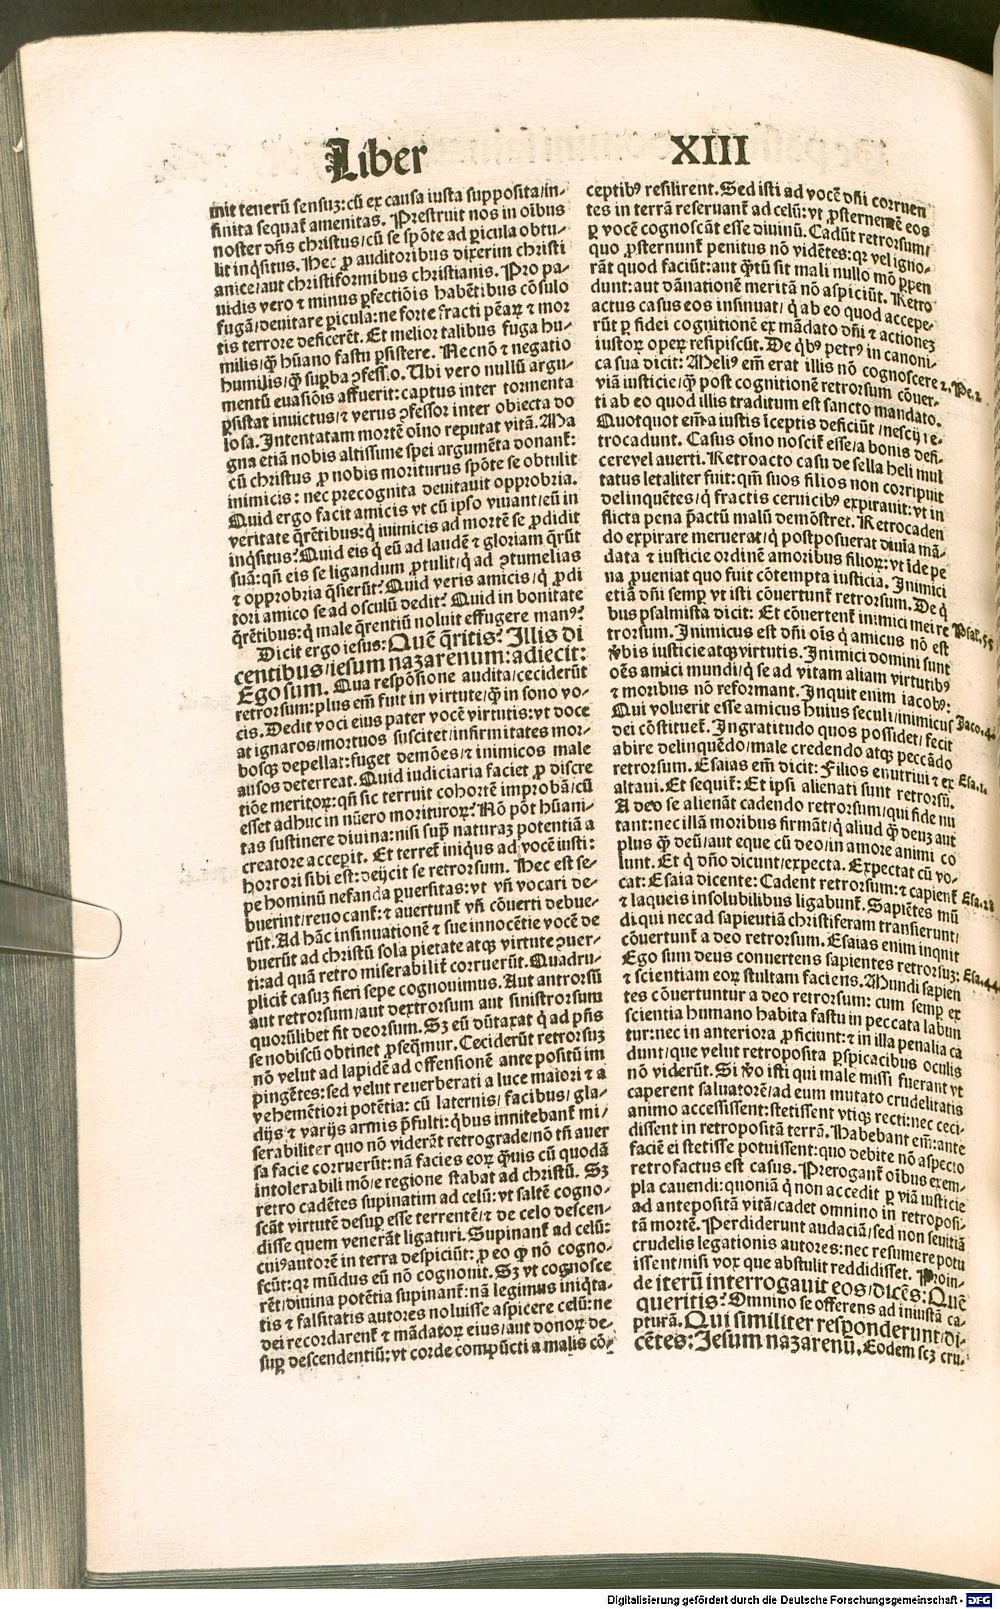 Liber XIII
mit tenerū sensuz: cū ex causa iusta supposita/in-
finita sequat̄ amenitas. Prestruit nos in oībus
noster dn̄s christus/cū se spōte ad ꝑicula obtu-
lit inq̄situs. Hec ꝓ auditoribus dixerim christi
anice/aut christiformibus christianis. Pro pa-
uidis vero ⁊ minus ꝑfectiōis habētibus cōsulo
fugā/deuitare ꝑicula: ne forte fracti pēaꝝ ⁊ mor
tis terrore deficerēt. Et melior talibus fuga hu-
milis/q̄ȝ hūano fastu ꝑsistere. Necnō ⁊ negatio
humilis/q̄ȝ supba ꝯfessio. Ubi vero nullū argu-
mentū euasiōis affuerit: captus inter tormenta
ꝑsistat inuictus/⁊ verus ꝯfessor inter obiecta do
losa. Intentatam mortē oīno reputat vitā. Ma
gna etiā nobis altissime spei argumēta donant̄:
cū christus ꝓ nobis moriturus spōte se obtulit
inimicis: nec precognita deuitauit opprobria.
Quid ergo facit amicis vt cū ipso viuant/eū in
veritate q̄rētibus: q̄ inimicis ad mortē se ꝓdidit
inq̄situs? Quid eis q̄ eū ad laudē ⁊ gloriam q̄rūt
suā: qn̄ eis se ligandum ꝓtulit/q̄ ad ꝯtumelias
⁊ opprobria q̄sierūt? Quid veris amicis/q̄ ꝓdi
tori amico se ad osculū dedit? Quid in bonitate
q̄rētibus: q̄ male q̄rentiū noluit effugere man⁹?
Dicit ergo iesus: Quē q̄ritis? Illis di
centibus/iesum nazarenum: adiecit:
Ego sum. Qua respōsione audita/ceciderūt
retrorsum: plus em̄ fuit in virtute/q̄ȝ in sono vo-
cis. Dedit voci eius pater vocē virtutis: vt doce
at ignaros/mortuos suscitet/infirmitates mor-
bosq̄ȝ depellat: fuget demōes/⁊ inimicos male
ausos deterreat. Quid iudiciaria faciet ꝓ discre
tiōe meritoꝝ: qn̄ sic terruit cohortē improbā/cū
esset adhuc in nūero morituroꝝ? Nō pōt hūani-
tas sustinere diuina: nisi supꝰ naturaz potentiā a
creatore accepit. Et terret̄ iniq̄us ad vocē iusti:
horrori sibi est: deijcit se retrorsum. Hec est se-
pe hominū nefanda ꝑuersitas: vt vn̄ vocari de-
buerint/reuocant̄: ⁊ auertunt̄ vn̄ cōuerti debue-
rūt. Ad hāc insinuationē ⁊ sue innocētie vocē de
buerūt ad christū sola pietate atqȝ virtute ꝯuer-
ti: ad quā retro miserabilit̄ corruerūt. Quadru-
plicit̄ casuz fieri sepe cognouimus. Aut antrorsū
aut retrorsum/aut dextrorsum aut sinistrorsum
quorūlibet fit deorsum. Sz eū dūtaxat q̄ ad p̄ns
se nobiscū obtinet ꝓseq̄mur. Ceciderūt retrorsuz
nō velut ad lapidē ad offensionē ante positū im
pingētes: sed velut reuerberati a luce maiori ⁊ a
vehemētiori potētia: cū laternis/facibus/gla-
dijs ⁊ varijs armis p̄fulti: q̄bus innitebant̄ mi/
serabiliter quo nō viderāt retrograde/nō tn̄ auer
sa facie corruerūt: nā facies eoꝝ q̄ȝuis cū quodā
intolerabili mō/e regione stabat ad christū. Sz
retro cadētes supinatim ad celū: vt saltē cogno-
scāt virtutē desuꝑ esse terrentē/⁊ de celo descen-
disse quem venerāt ligaturi. Supinant̄ ad celū:
cui⁹ autorē in terra despiciūt: ꝓ eo ꝙ nō cogno-
scūt: qꝛ mūdus eū nō cognouit. Sz vt cognosce
rēt/diuina potētia supinant̄: nā legimus iniq̄ta-
tis ⁊ falsitatis autores noluisse aspicere celū: ne
dei recordarent̄ ⁊ mādatoꝝ eius/aut donoꝝ de-
suꝑ descendentiū: vt corde compūcti a malis cō-
ceptib⁹ resilirent. Sed isti ad vocē dn̄i corruen
tes in terrā reseruant̄ ad celū: vt ꝓsternentē eos
ꝑ vocē cognoscāt esse diuinū. Cadūt retrorsum/
quo ꝓsternunt̄ penitus nō vidētes: qꝛ vel igno-
rāt quod faciūt: aut q̄tū sit mali nullo mō ꝑpen
dunt: aut dānationē meritā nō aspiciūt. Retro
actus casus eos insinuat/q̄ ab eo quod accepe-
rūt ꝑ fidei cognitionē ex mādato dn̄i ⁊ actionez
iustoꝝ opeꝝ resipiscūt. De q̄b⁹ petr⁹ in canoni-
ca sua dicit: Meli⁹ em̄ erat illis nō cognoscere 2. Pe. 2
viā iusticie/q̄ȝ post cognitionē retrorsum cōuer-
ti ab eo quod illis traditum est sancto mandato.
Quotquot em̄ a iustis īceptis deficiūt/nescij re-
trocadunt. Casus oīno noscit̄ esse/a bonis defi-
cere vel auerti. Retroacto casu de sella heli mul
tatus letaliter fuit: qm̄ suos filios non corripuit
delinquētes/q̄ fractis ceruicib⁹ expirauit: vt in
flicta pena p̄actū malū demōstret. Retrocaden
do expirare meruerat/q̄ postposuerat diuīa mā-
data ⁊ iusticie ordinē amoribus filioꝝ: vt īde pe
na ꝓueniat quo fuit cōtempta iusticia. Inimici
etiā dn̄i semꝑ vt isti cōuertunt̄ retrorsum. De q̄
bus psalmista dicit: Et cōuertent̄ inimici mei re Psal. 55
trorsum. Inimicus est dn̄i oīs q̄ amicus nō est
v̄bis iusticie atqȝ virtutis. Inimici domini sunt
oēs amici mundi/q̄ se ad vitam aliam virtutib⁹
⁊ moribus nō reformant. Inquit enim iacob⁹:
Qui voluerit esse amicus huius seculi/inimicus Jaco. 4.
dei cōstituet̄. Ingratitudo quos possidet/fecit
abire delinquēdo/male credendo atqȝ peccādo
retrorsum. Esaias em̄ dicit: Filios enutriui ⁊ ex Esa. 1.
altaui. Et sequit̄: Et ipsi alienati sunt retrorsū.
A deo se alienāt cadendo retrorsum/qui fide nu
tant: nec illā moribus firmāt/q̄ aliud q̄ȝ deuz aut
plus q̄ȝ deū/aut eque cū deo/in amore animi co
lunt. Et q̄ dn̄o dicunt/expecta. Expectat cū vo-
cat: Esaia dicente: Cadent retrorsum: ⁊ capient̄ Esa. 28
⁊ laqueis insolubilibus ligabunt̄. Sapiētes mū
di qui nec ad sapientiā christiferam transierunt/
cōuertunt̄ a deo retrorsum. Esaias enim inquit
Ego sum deus conuertens sapientes retrorsuz: Esa. 44.
⁊ scientiam eoꝝ stultam faciens. Mundi sapien
tes cōuertuntur a deo retrorsum: cum semꝑ ex
scientia humano habita fastu in peccata labun
tur: nec in anteriora ꝓficiunt: ⁊ in illa penalia ca
dunt/que velut retroposita ꝑspicacibus oculis
nō viderūt. Si v̄o isti qui male missi fuerant vt
caperent saluatorē/ad eum mutato crudelitatis
animo accessissent: stetissent vtiqȝ recti: nec ceci-
dissent in retropositā terrā. Habebant em̄: ante
faciē ei stetisse potuissent: quo debite nō aspecto
retrofactus est casus. Prerogant̄ oībus exem-
pla cauendi: quoniā q̄ non accedit ꝑ viā iusticie
ad antepositā vitā/cadet omnino in retroposi-
tā mortē. Perdiderunt audaciā/sed non seuitiā
crudelis legationis autores: nec resumere potu
issent/nisi vox que abstulit reddidisset. Proin-
de iterū interrogauit eos/dicēs: Quē
queritis? Omnino se offerens ad iniustā ca-
pturā. Qui similiter responderunt/di-
cētes: Jesum nazarenū. Eodem scz cru-
Digitalisierung gefördert durch die Deutsche Forschungsgemeinschaft - DFG